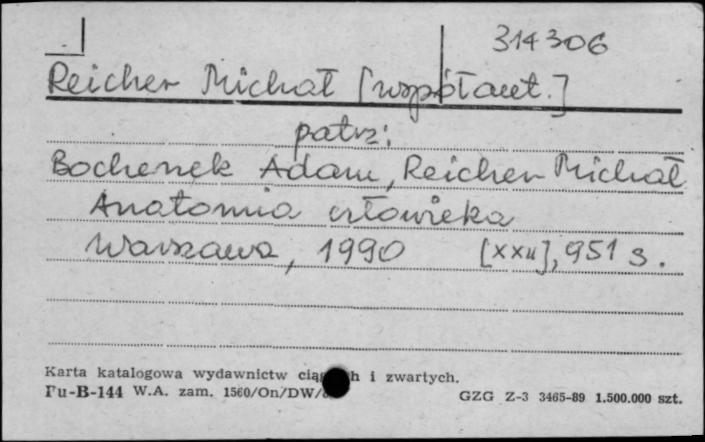 314306
Reicher Michał [współaut.]
patrz:
Bochenek Adam, Reicher Michał
Anatomia człowieka
Warszawa, 1990 [XXII], 951 s.
Karta katalogowa wydawnictw i zwartych.
Pu-B-144 W.A. zam. 1560/On/DW/ GZG Z-3 3465-89 1.500.000 szt.